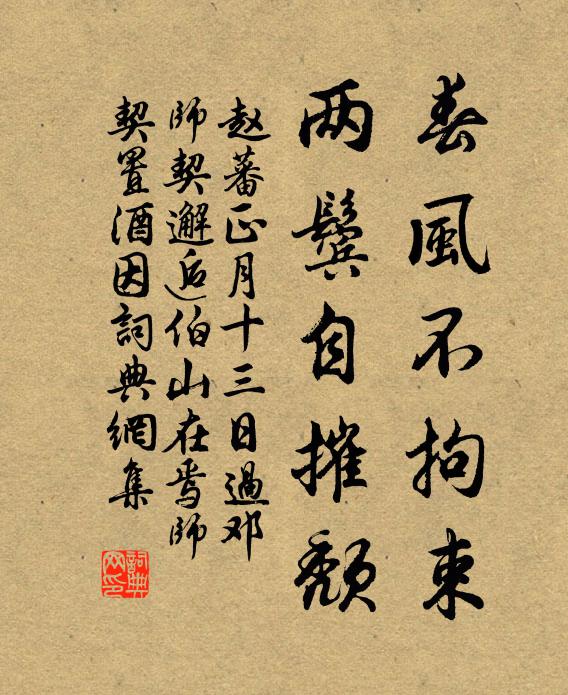 春風不拘束
两鬓自摧颓
赵蕃正月十三日過邓
師契邂逅伯山在焉師
契置酒因詞典網集
詞典網印